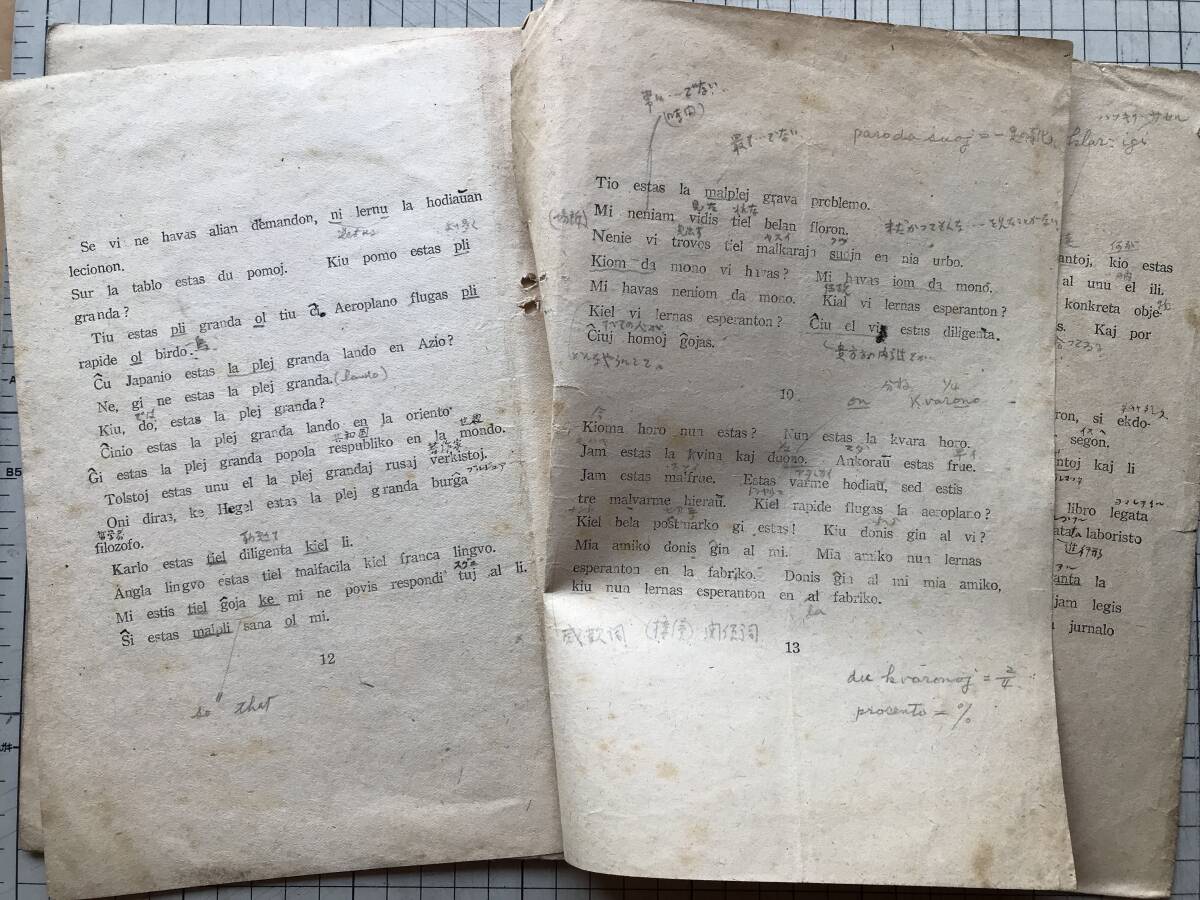 Se vi ne havas alian demandon, ni lernu la hodiaŭan
let us
lecionon.
Sur la tablo estas du pomoj. Kiu pomo estas pli
granda?
Tiu estas pli granda ol tiu ĉi. Aeroplano flugas pli
rapide ol birdo.
鳥
Ĉu Japanio estas la plej granda lando en Azio?
Ne, ĝi ne estas la plej granda.
(lando)
Kiu, do, estas la plej granda?
Ĉinio estas la plej granda lando en la oriento
共和国
世界
Ĝi estas la plej granda popola respubliko en la mondo.
著作家
Tolstoj estas unu el la plej grandaj rusaj verkistoj.
Oni diras, ke Hegel estas la plej granda burĝa
ブルジョア
filozofo.
哲学者
Karlo estas tiel diligenta kiel li.
Angla lingvo estas tiel malfacila kiel franca lingvo.
スグニ
Mi estis tiel ĝoja ke mi ne povis respondi tuj al li.
Ŝi estas malpli sana ol mi.
12
so that
(時間)
最も…でない
paroda suoj =
Tio estas la malplej grava problemo.
Mi neniam vidis tiel belan floron.
(場所)
Nenie vi trovos tiel malkarajn ŝuojn en nia urbo.
Kiom da mono vi havas? Mi havas iom da mono.
Mi havas neniom da mono. Kial vi lernas esperanton?
Kiel vi lernas esperanton? Ĉiu el vi estas diligenta.
すべての人が
Ĉiuj homoj ĝojas.
10
分数 1/4
on kvarono
今
Kioma horo nun estas? Nun estas la kvara horo.
Jam estas la kvina kaj duono. Ankoraŭ estas frue.
Jam estas malfrue. Estas varme hodiaŭ, sed estis
tre malvarme hieraŭ. Kiel rapide flugas la aeroplano?
Kiel bela poŝtmarko ĝi estas! Kiu donis ĝin al vi?
Mia amiko donis ĝin al mi. Mia amiko nun lernas
esperanton en la fabriko. Donis ĝin al mi mia amiko,
kiu nun lernas esperanton en al fabriko.
la
感歎詞 (接続) 関係詞
13
du kvaronoj = 2/4
procento = %
ハッキリサセル
klar-igi
antoj, kio estas
al unu el ili.
konkreta obje-
s. Kaj por
ron, si ekdo-
segon.
ntoj kaj li
libro legata
ata laboristo
anta la
jam legis
jurnalo